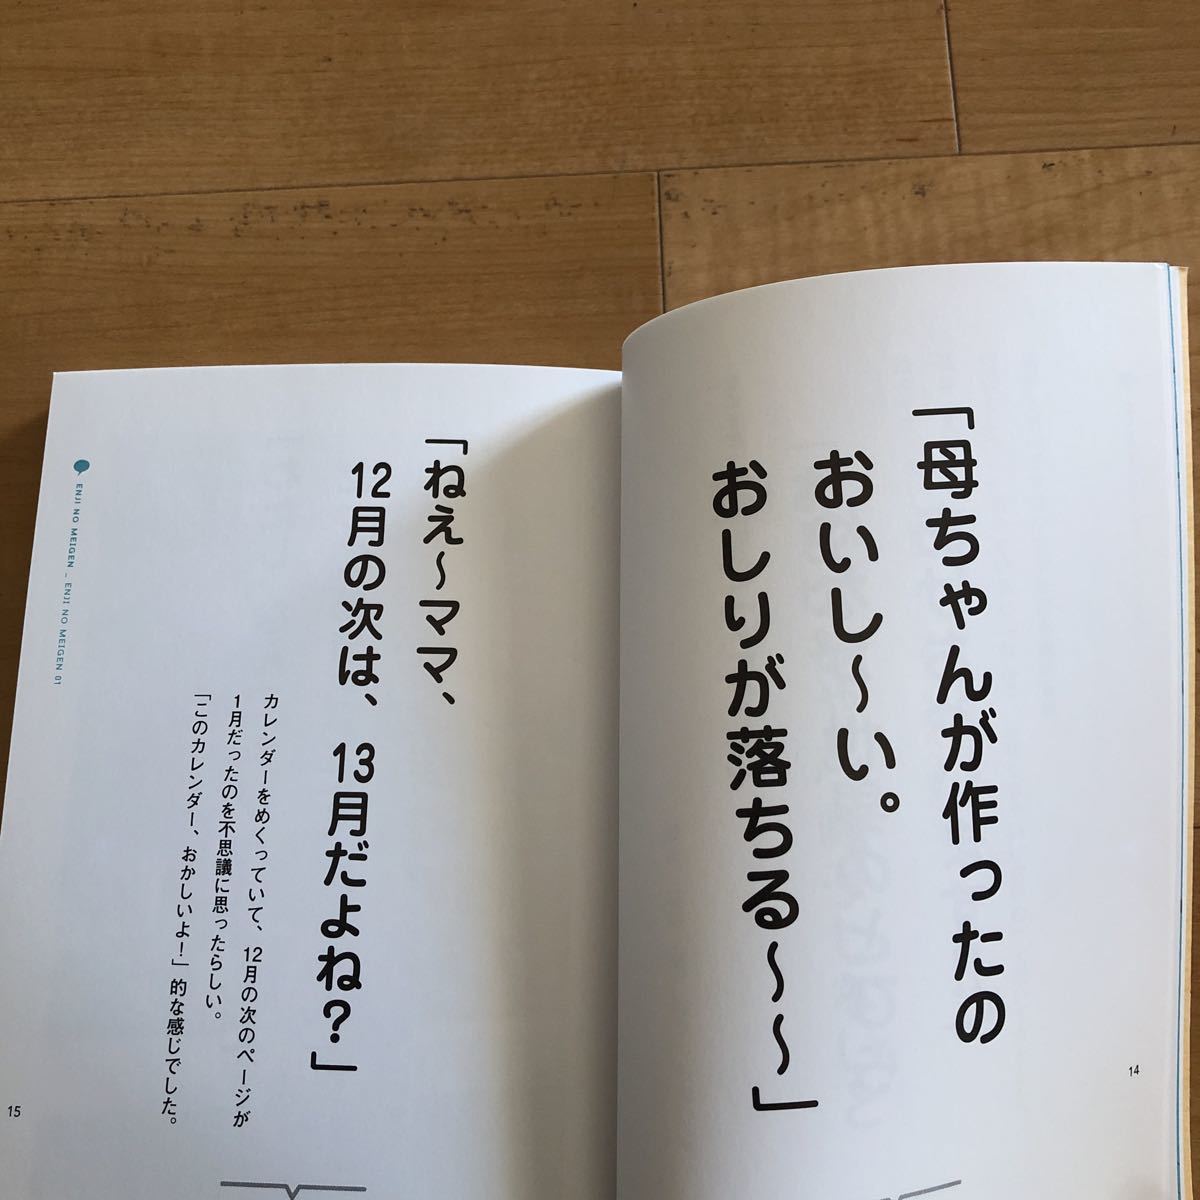 「母ちゃんが作ったの
おいし～い。
おしりが落ちる～～」
14
「ねぇ～ママ、
12月の次は、13月だよね？」
カレンダーをめくっていて、12月の次のページが
1月だったのを不思議に思ったらしい。
「このカレンダー、おかしいよ！」的な感じでした。
ENJI NO MEIGEN – ENJI NO MEIGEN 01
15